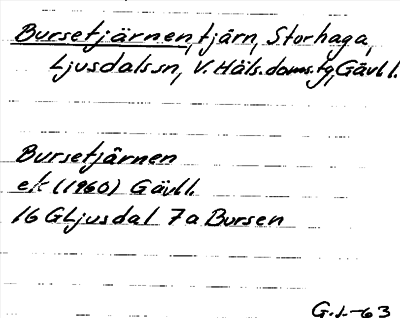 Bursetjärnen, tjärn, Storhaga,
Ljusdals sn, V. Häls. doms. tg, Gävl l.
Bursetjärnen
ek (1960) Gävll.
16 G Ljusdal 7a Bursen
G.L-63